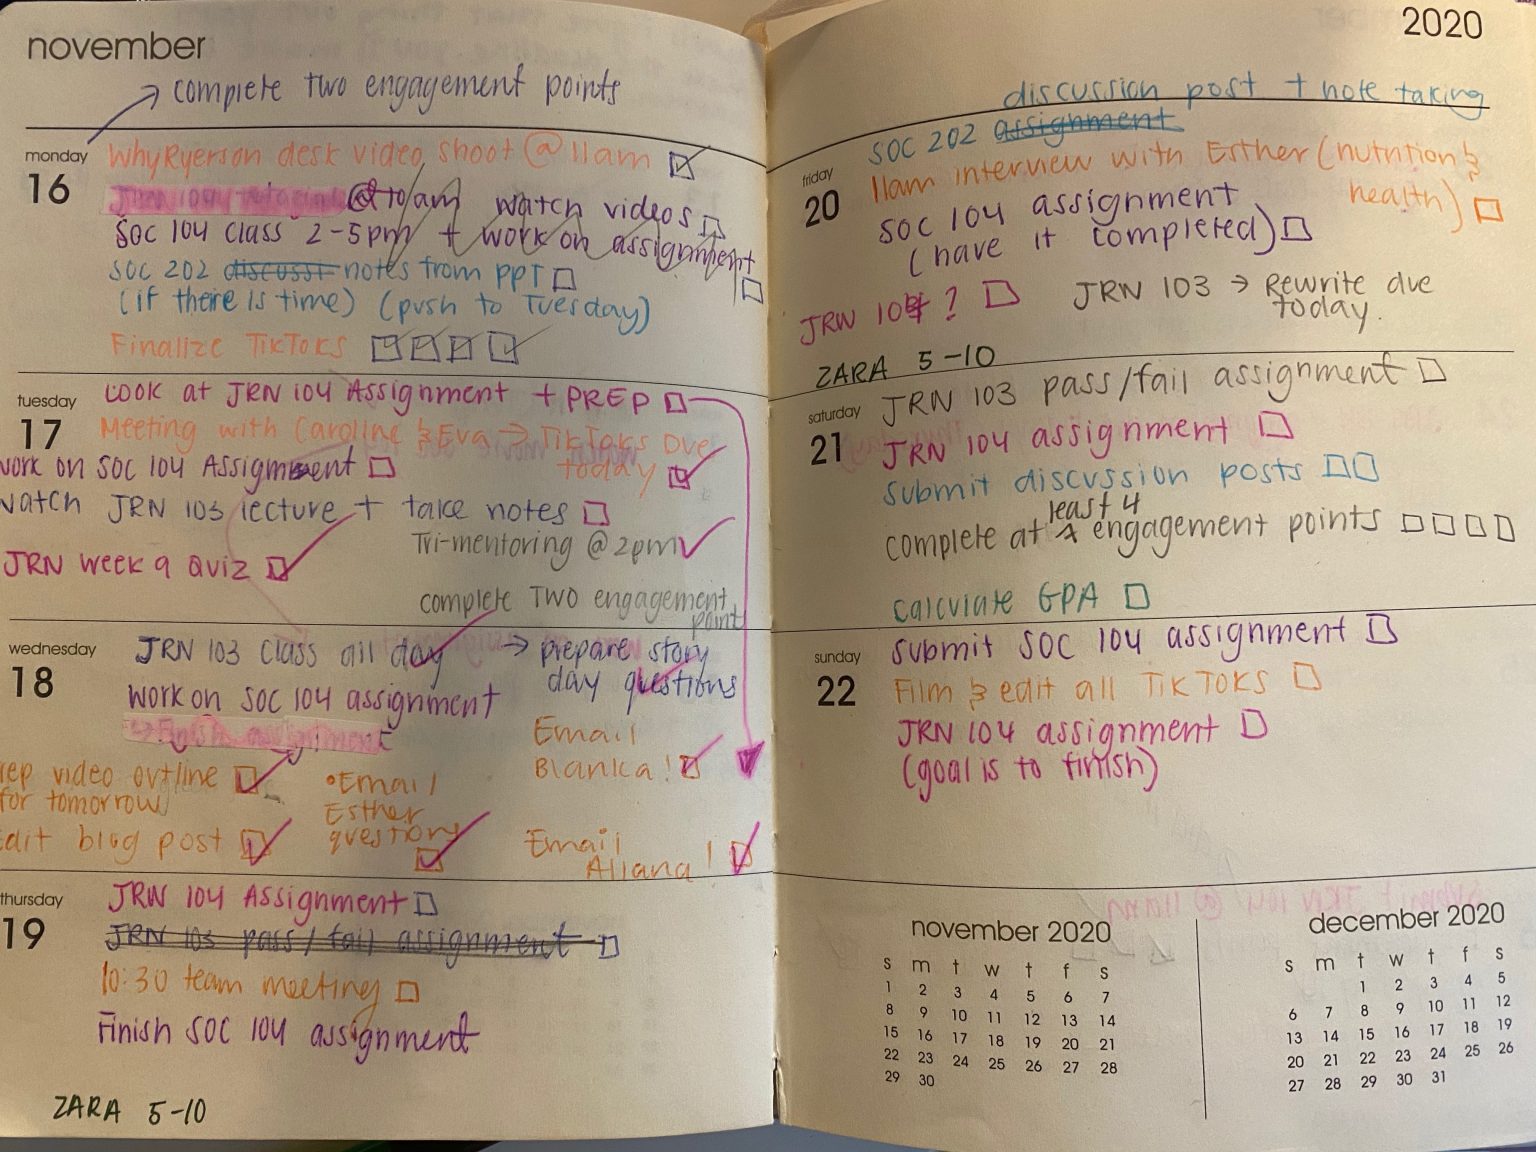 november
complete Two engagement points
monday
16
WhyRyerson desk video shoot @ 11am
@ 10am watch videos
SOC 104 class 2-5pm + work on assignment
SOC 202 discussi notes from PPT
(if there is time) (push to Tuesday)
Finalize TikToks
tuesday
17
Look at JRN 104 Assignment + PREP
Meeting with Caroline & Eva → TikToks Due
today
work on SOC 104 Assignment
watch JRN 103 lecture + take notes
Tri-mentoring @ 2pm
JRN week 9 Quiz
complete TWO engagement
point
wednesday
18
JRN 103 class all day → prepare story
day questions
work on SOC 104 assignment
Email
Blanka!
rep video outline
for tomorrow
• Email
Esther
questions
Edit blog post
Email
Aliana!
thursday
19
JRN 104 Assignment
JRN 103 pass/fail assignment
10:30 team meeting
Finish SOC 104 assignment
ZARA 5-10
2020
discussion post + note taking
SOC 202 assignment
friday
20
11am interview with Esther (nutrition &
health)
SOC 104 assignment
(have it completed)
JRN 104 ? JRN 103 → Rewrite due
today.
ZARA 5-10
saturday
21
JRN 103 pass/fail assignment
JRN 104 assignment
Submit discussion posts
least 4
complete at engagement points
calculate GPA
sunday
22
Submit SOC 104 assignment
Film & edit all TikToks
JRN 104 assignment
(goal is to finish)
november 2020
s m t w t f s
1 2 3 4 5 6 7
8 9 10 11 12 13 14
15 16 17 18 19 20 21
22 23 24 25 26 27 28
29 30
december 2020
s m t w t f s
1 2 3 4 5
6 7 8 9 10 11 12
13 14 15 16 17 18 19
20 21 22 23 24 25 26
27 28 29 30 31